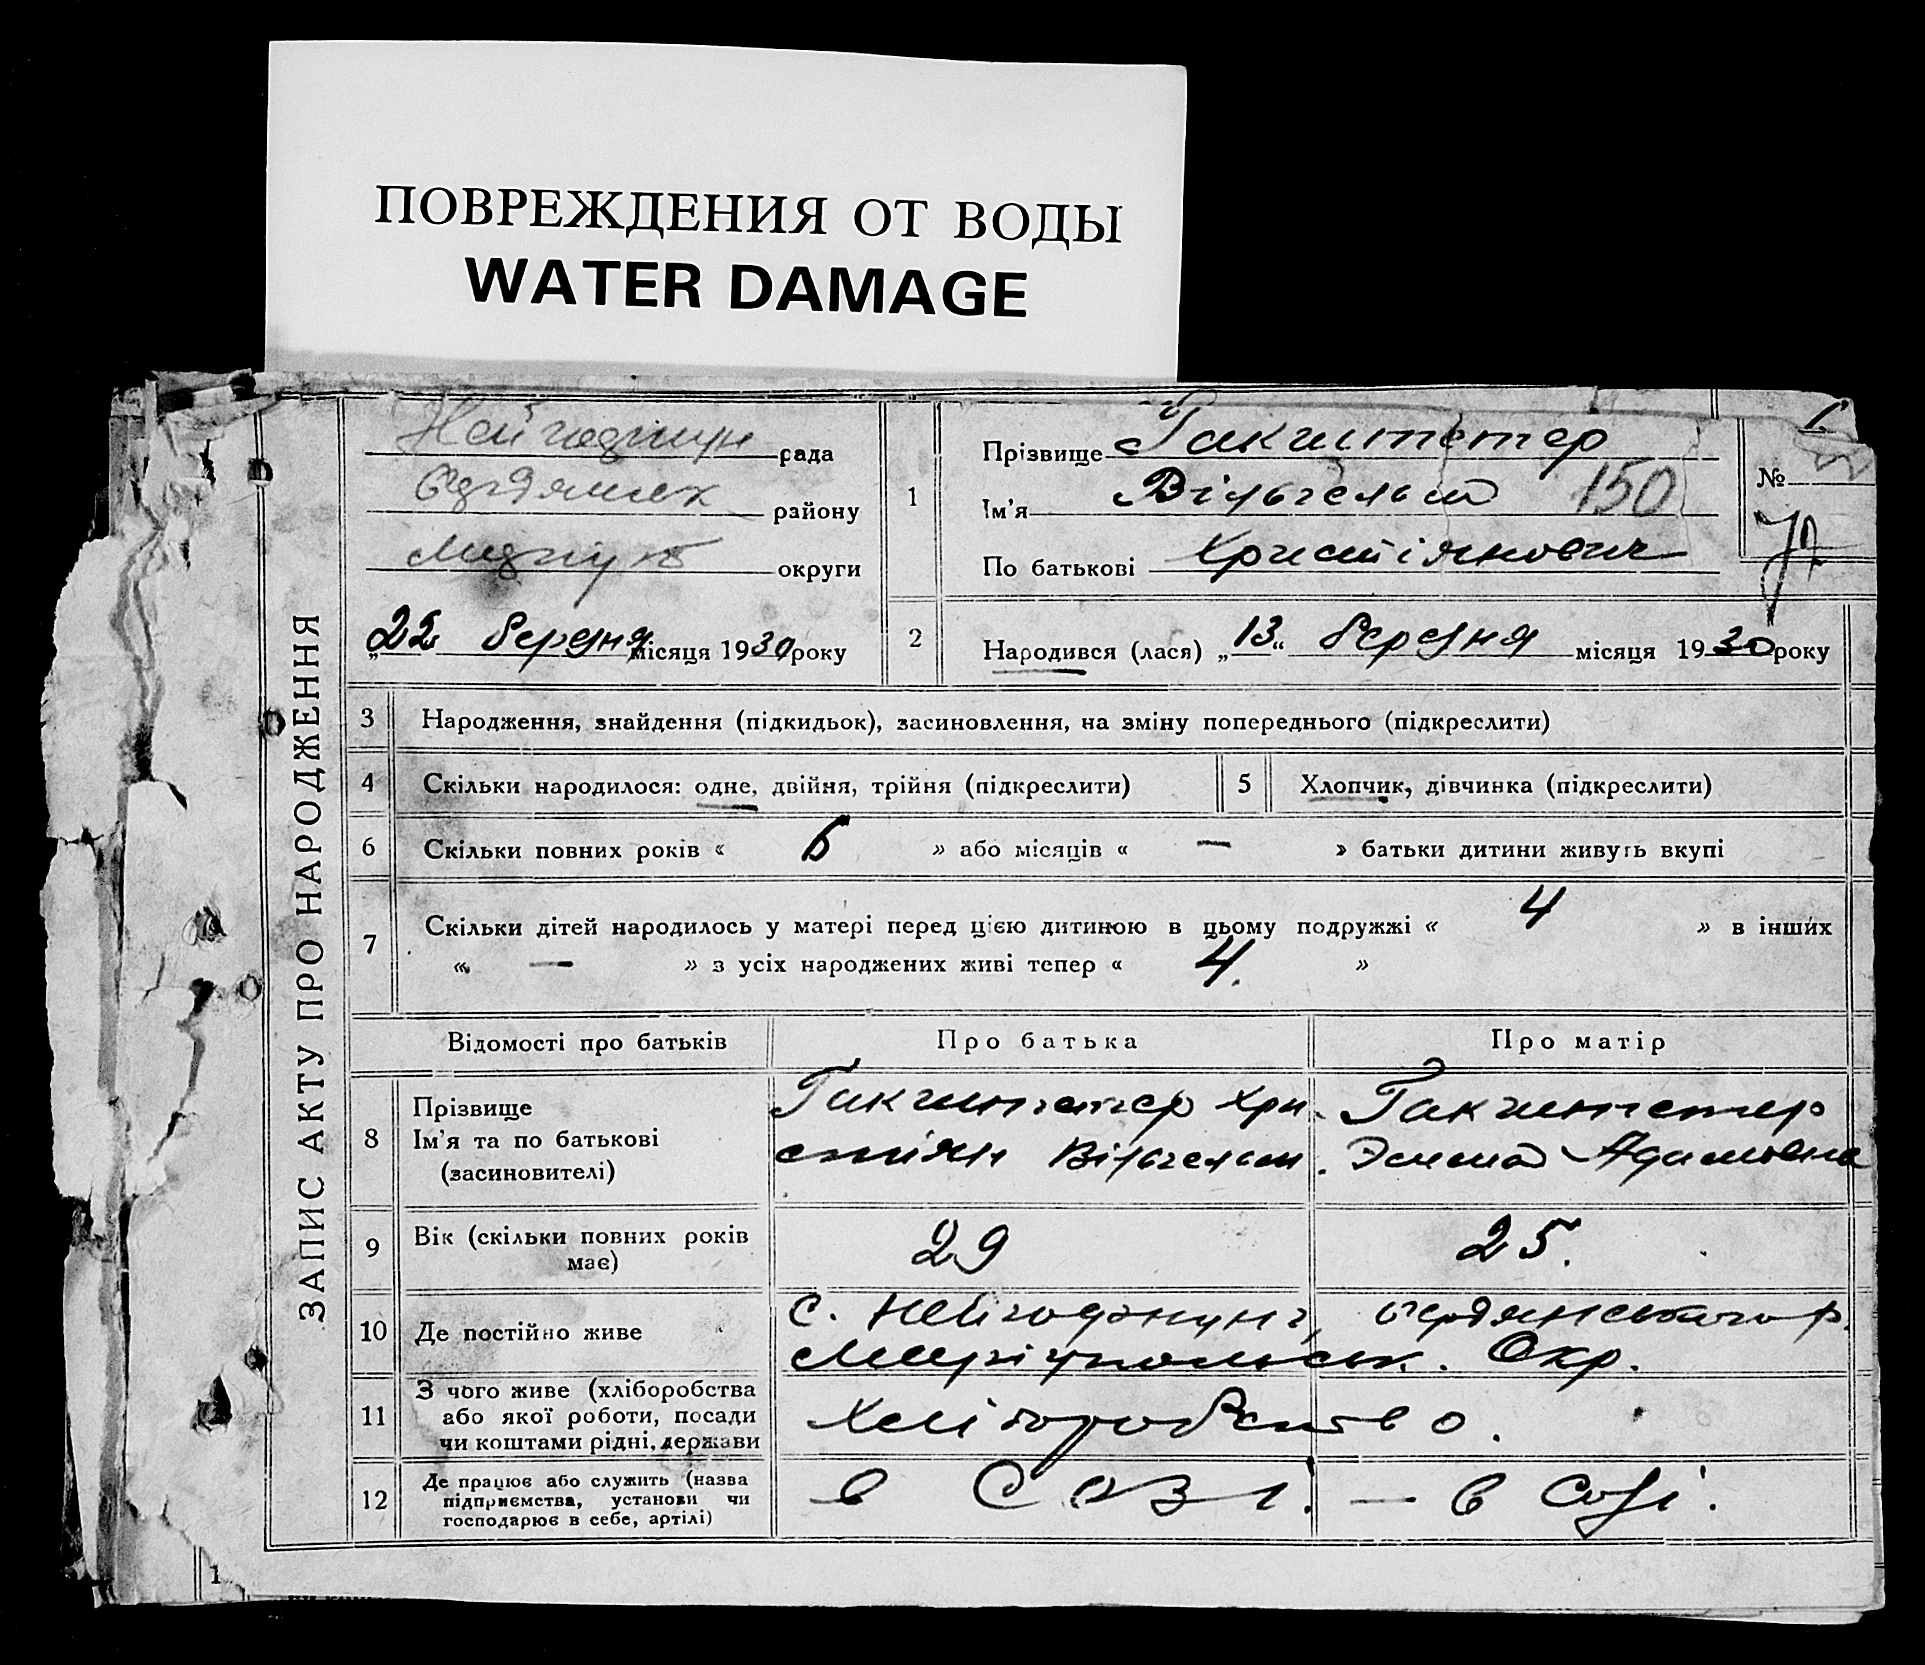 ПОВРЕЖДЕНИЯ ОТ ВОДЫ
WATER DAMAGE
ЗАПИС АКТУ ПРО НАРОДЖЕННЯ
рада
району
округи
„22“ березня місяця 1930 року
1
Прізвище Гакштетер
Ім’я Вільгельм 150
По батькові Христіянович
№
2
Народився (лася) „13“ березня місяця 1930 року
3 Народження, знайдення (підкидьок), засиновлення, на зміну попереднього (підкреслити)
4 Скільки народилося: одне, двійня, трійня (підкреслити)
5 Хлопчик, дівчинка (підкреслити)
6 Скільки повних років « » або місяців « — » батьки дитини живуть вкупі
7 Скільки дітей народилось у матері перед цією дитиною в цьому подружжі « 4 » в інших
« — » з усіх народжених живі тепер « 4. »
Відомості про батьків Про батька Про матір
8 Прізвище
Ім’я та по батькові
(засиновителі)
Гакштетер Хри-
стіян Вільгельм.
Гакштетер
Эмма Адамовна
9 Вік (скільки повних років
має)
29 25.
10 Де постійно живе
с. Нейгофнунг, бердянського р.
Маріупольськ. Окр.
11 З чого живе (хліборобства
або якої роботи, посади
чи коштами рідні, держави
Хліборобство.
12 Де працює або служить (назва
підприємства, установи чи
господарює в себе, артілі)
в Созі. — в Созі.
1